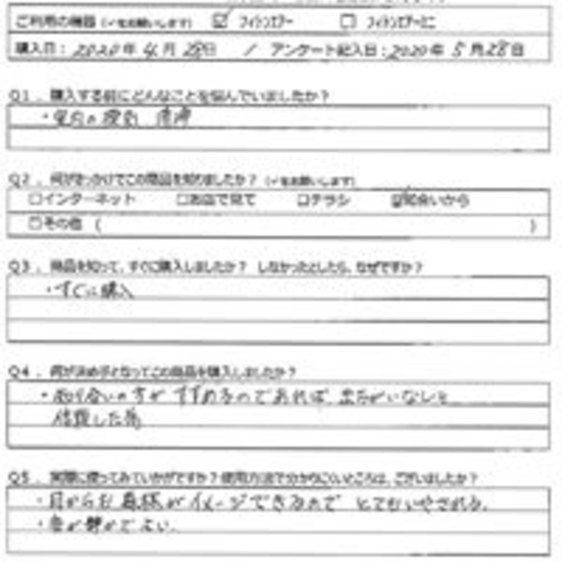 ご利用の機器 (✓をお願いします) ☑ フィトンエアー ☐ フィトンエアーミニ
購入日：2020年4月28日 / アンケート記入日：2020年5月28日
Q1．購入する前にどんなことを悩んでいましたか？
・室内の換気 清浄
Q2．何がきっかけでこの商品を知りましたか？ (✓をお願いします)
☐インターネット ☐お店で見て ☐チラシ ☑知合いから
☐その他 ( )
Q3．商品を知って、すぐに購入しましたか？ しなかったとしたら、なぜですか？
・すぐに購入
Q4．何が決め手となってこの商品を購入しましたか？
・知り合いの方がすすめるのであれば、まちがいないと
信頼した為
Q5．実際に使ってみていかがですか？使用方法で分かりにくいところは、ございましたか？
・目からも森林がイメージできるので とてもいやされる。
・音が静かでよい。